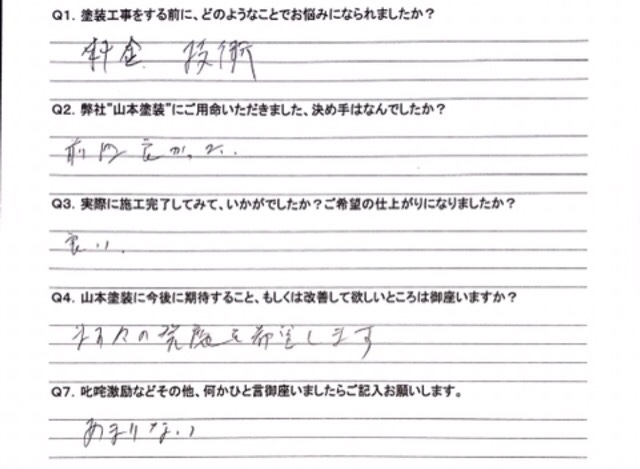 Q1. 塗装工事をする前に、どのようなことでお悩みになられましたか？
料金 技術
Q2. 弊社"山本塗装"にご用命いただきました、決め手はなんでしたか？
前回良かった.
Q3. 実際に施工完了してみて、いかがでしたか？ご希望の仕上がりになりましたか？
良い.
Q4. 山本塗装に今後に期待すること、もしくは改善して欲しいところは御座いますか？
の発展を希望します
Q7. 叱咤激励などその他、何かひと言御座いましたらご記入お願いします。
あまりない